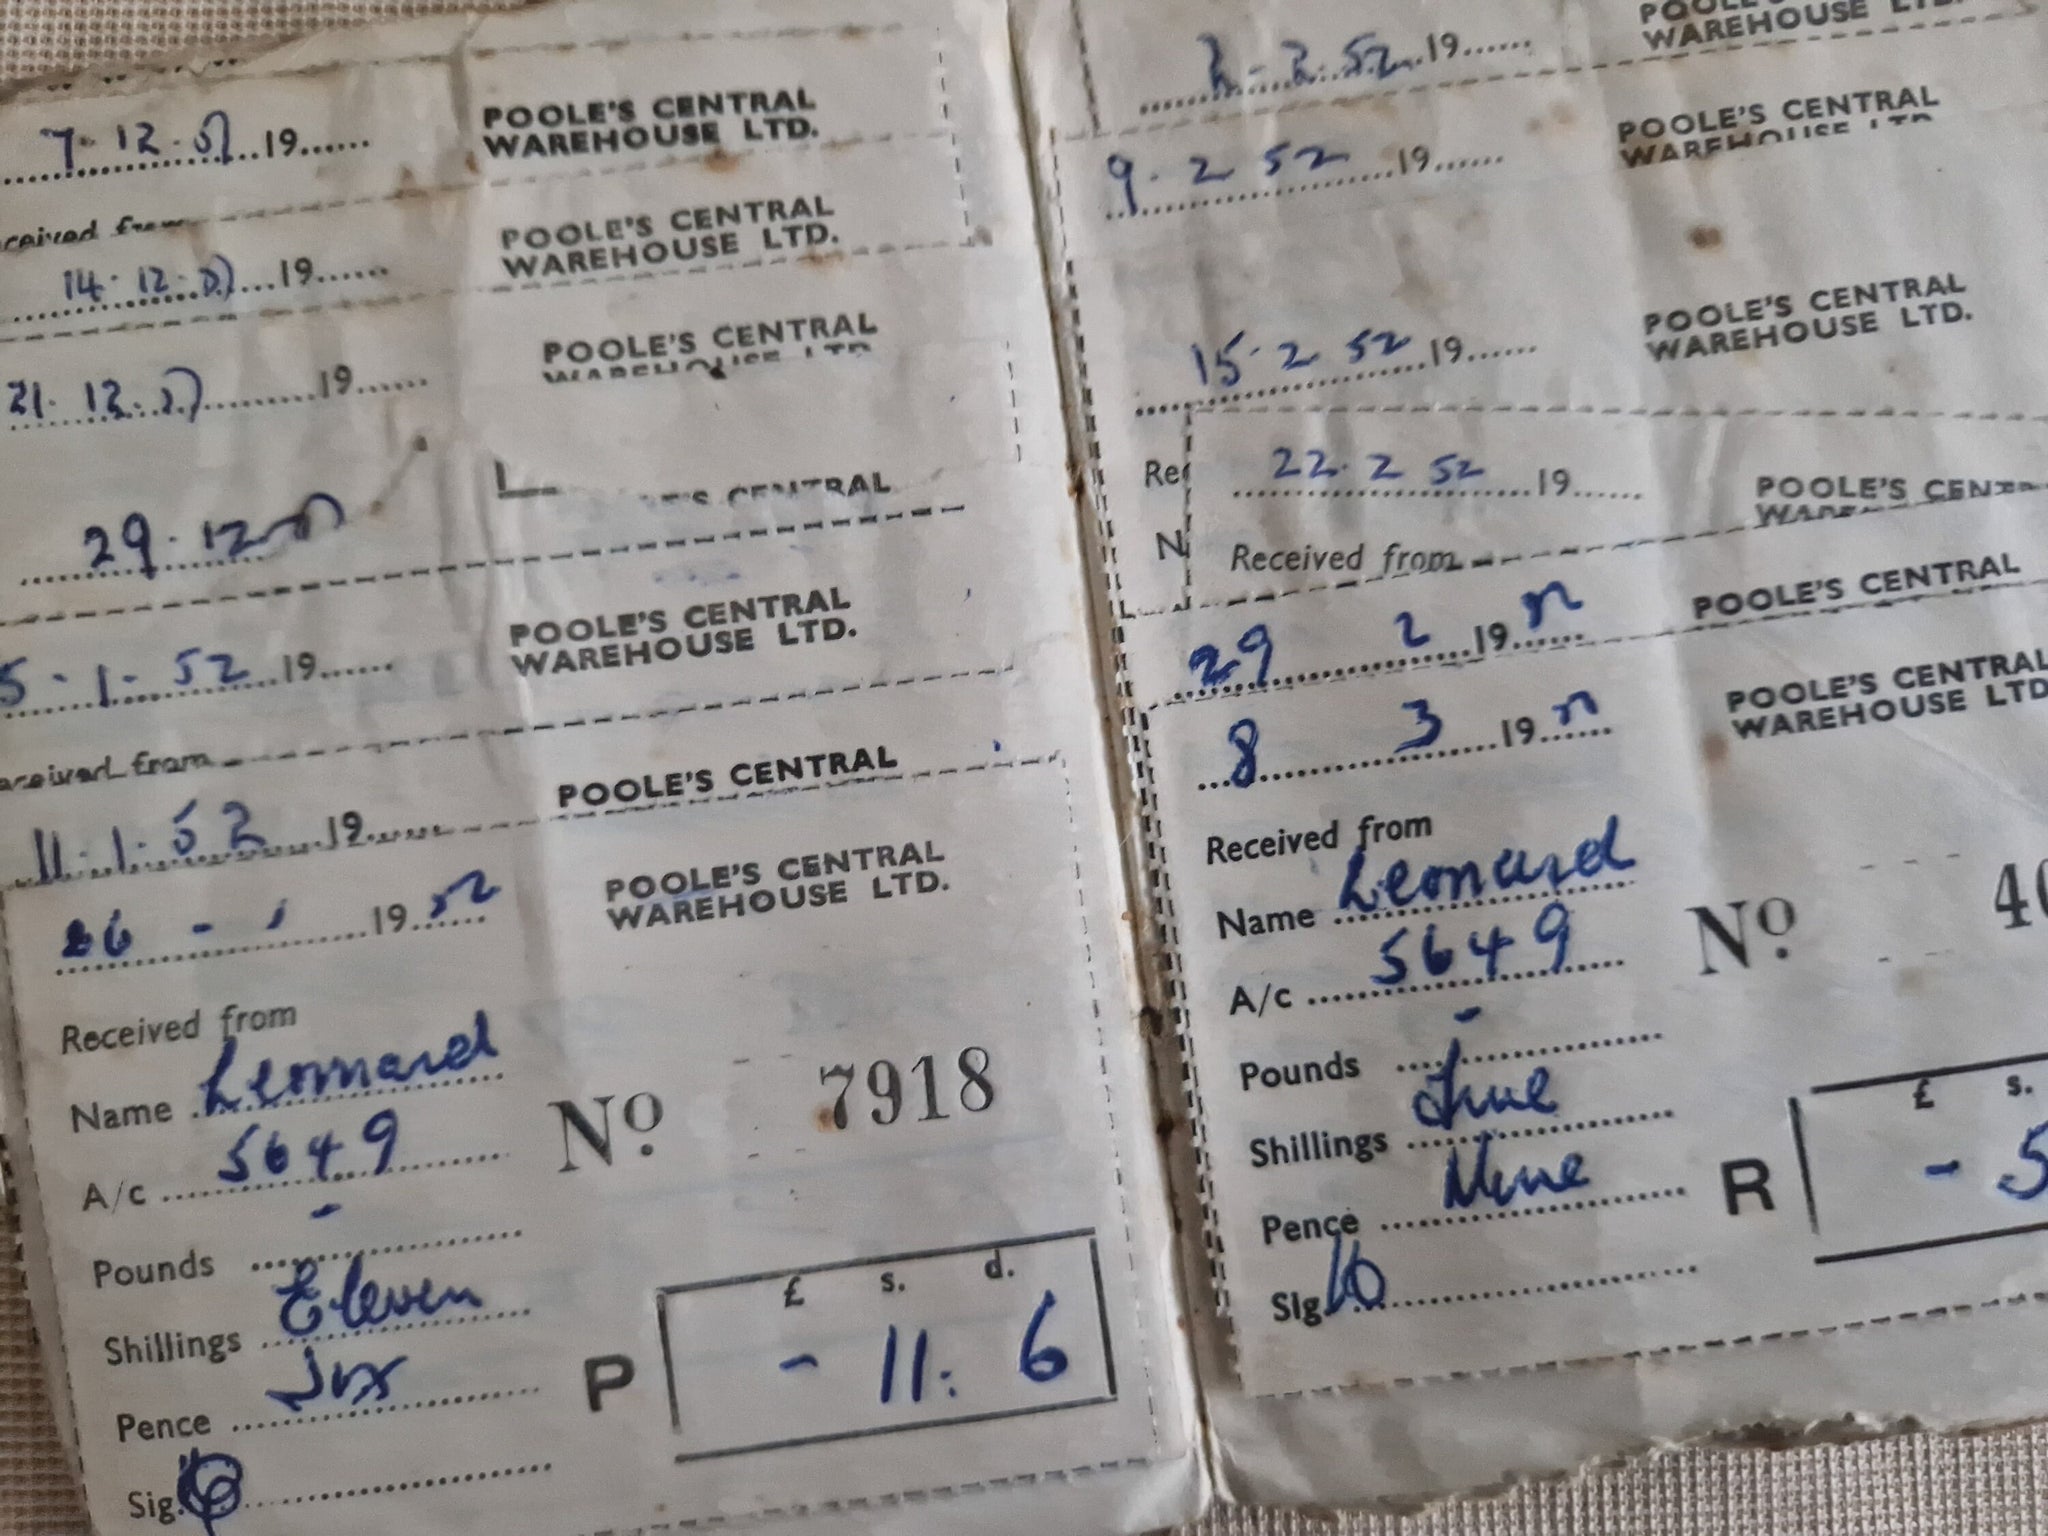 7. 12. 51 19......
POOLE'S CENTRAL
WAREHOUSE LTD.
ceived from
14. 12. 51 19......
POOLE'S CENTRAL
WAREHOUSE LTD.
21. 12. 51 19......
POOLE'S CENTRAL
WAREHOUSE LTD
29. 12. 51
'S CENTRAL
5 - 1 - 52 19......
POOLE'S CENTRAL
WAREHOUSE LTD.
eceived from
11. 1. 52 19......
POOLE'S CENTRAL
26 - 1 19 52
POOLE'S CENTRAL
WAREHOUSE LTD.
Received from
Name Leonard
No. 7918
A/c 5649
Pounds -
Shillings Eleven
Pence Six
P
£ s. d.
- 11. 6
Sig.
2 - 2. 52 19......
POOLE'S
WAREHOUSE LTD.
9. 2 52 19......
POOLE'S CENTRAL
WAREHOUSE LTD
15. 2 52 19......
POOLE'S CENTRAL
WAREHOUSE LTD.
Re
22. 2 52 19......
POOLE'S CENTRAL
N
Received from
29 2 19 52
POOLE'S CENTRAL
8 3 19 52
POOLE'S CENTRAL
WAREHOUSE LTD
Received from
Name Leonard
No. 40
A/c 5649
Pounds -
Shillings Five
Pence Nine
R
£ s.
- 5
Sig.